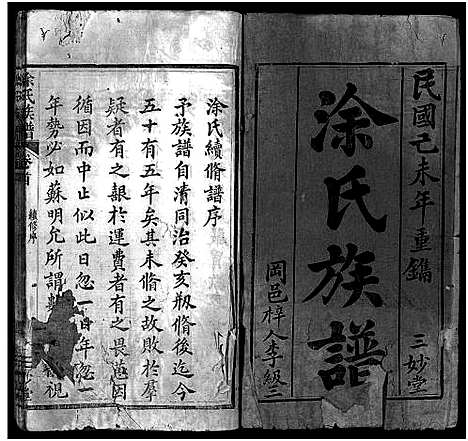 民國己未年重鐫
涂氏族譜
三妙堂
岡邑梓人李級三
涂氏續脩譜序
予族譜自清同治癸亥剏脩後迄今
五十有五年矣其未脩之故敗於羣
疑者有之艱於運費者有之畏葸因
循因而中止似此日忽一日年忽一
年勢必如蘇明允所謂
視
涂氏族譜
卷首
續修序